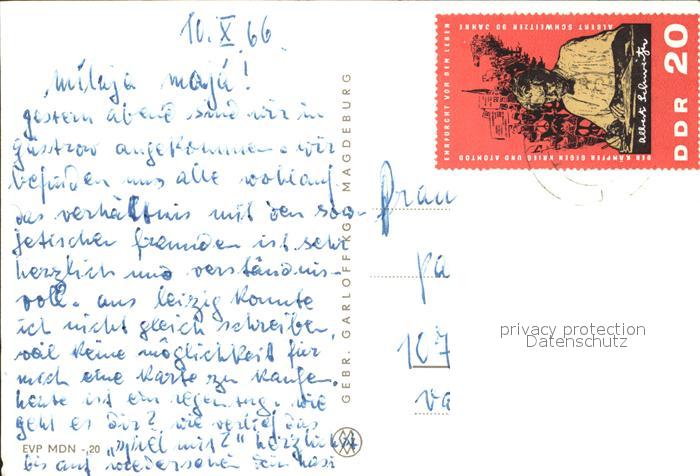 10. X. 66.
"milaja maja!
gestern abend sind wir in
güstrow angekommen. wir
befinden uns alle wohlauf.
das verhältnis mit den sow-
jetischen freunden ist sehr
herzlich und verständnis-
voll. aus leizig konnte
ich nicht gleich schreiben,
weil keine möglichkeit für
mich eine karte zu kaufen.
heute ist ein regentag. wie
geht es dir? wie verlief das
"spiel mit?" herzlichst
bis auf wiedersehen
EVP MDN -,20
GEBR. GARLOFF KG MAGDEBURG
Frau
pa
107
va
EHRFURCHT VOR DEM LEBEN
ALBERT SCHWEITZER 90 JAHRE
DER KÄMPFER GEGEN KRIEG UND ATOMTOD
Albert Schweitzer
DDR 20
privacy protection
Datenschutz